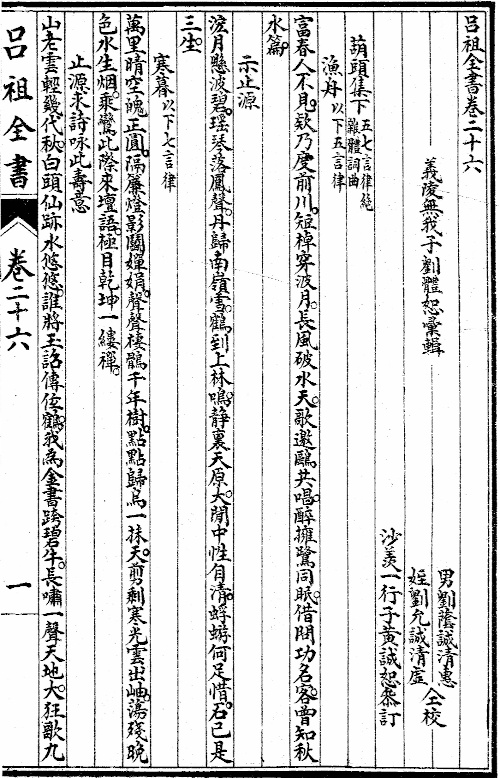 呂祖全書卷二十六
義陵無我子劉體恕彙輯
男劉蔭誠清惠
姪劉允誠清虛 仝校
沙羨一行子黃誠恕叅訂
葫頭集下 五七言律絕雜體詞曲
漁舟 以下五言律
富春人不見。欸乃度前川。短棹穿波月。長風破水天。歌邀鷗共唱。醉擁鷺同眠。借問功名客。曾知秋
水篇。
示止源
澄月懸波碧。瑤琴落鳳聲。丹歸南嶺雪。鶴到上林鳴。靜裏天原大。閒中性自清。蜉蝣何足惜。石已是
三生。
寒暮 以下七言律
萬里晴空魄正圓。隔簾燈影鬭嬋娟。聲聲棲鶻千年樹。點點歸烏一抹天。剪剩寒光雲出岫。蕩殘晚
色水生烟。乘鸞此際來壇語。極目乾坤一縷禪。
止源求詩咏此壽意
山老雲輕幾代秋。白頭仙跡水悠悠。誰將玉詔傳伾鶴。我為金書跨碧牛。長嘯一聲天地大。狂歌九
呂祖全書 卷二十六 一